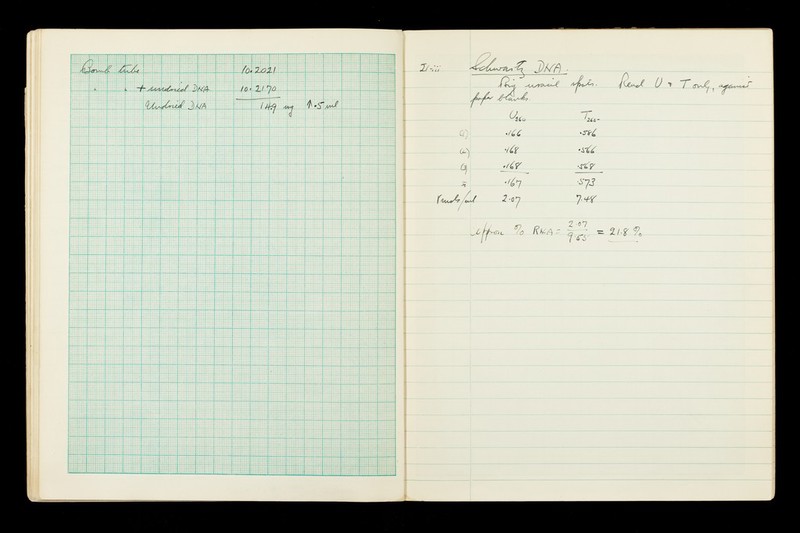 Bomb tube 10.2021
" " + undried DNA 10.2170
Undried DNA 149 mg
Schwartz DNA.
Big uracil spots. Read U & T only, against
paper blanks
U260 T260
(1) .166 .586
(2) .168 .566
(3) .168 .568
.167 573
2.07 7.48
approx % RNA = 2.07 / 9.55 = 21.8 %